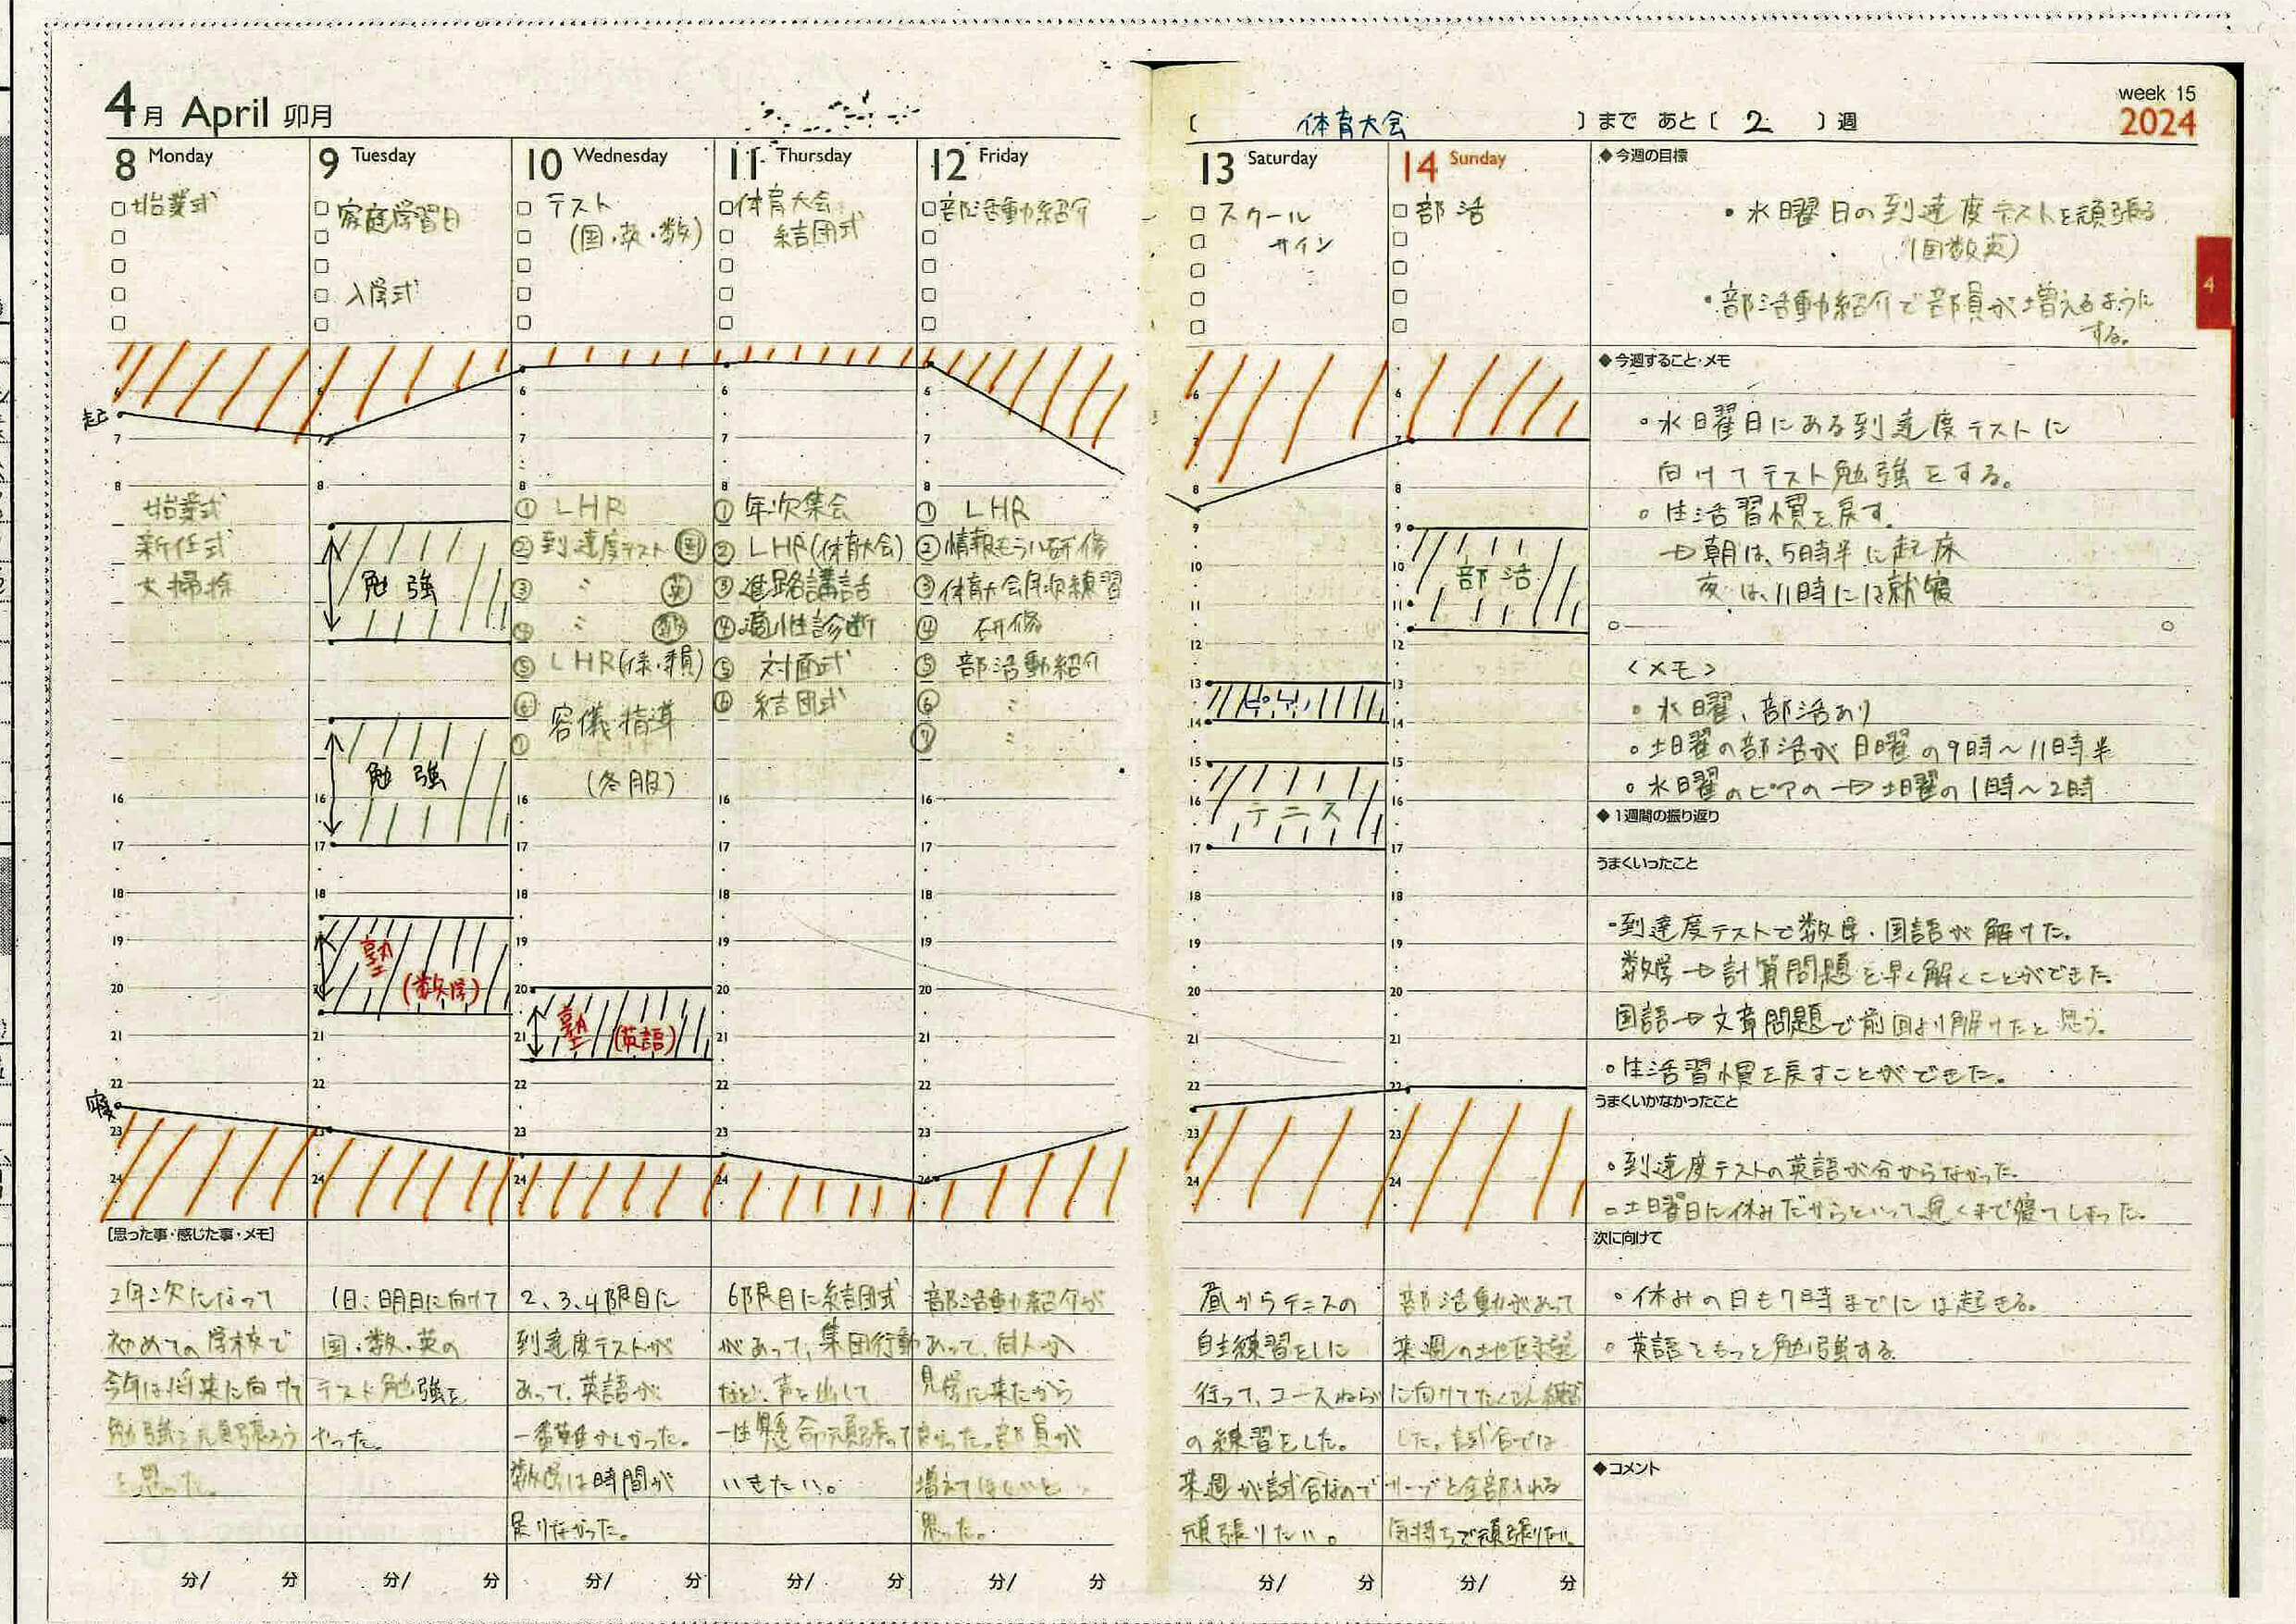 4月 April 卯月
〔 体育大会 〕まで あと〔 2 〕週
week 15
2024
8 Monday
□始業式
9 Tuesday
□家庭学習日
□入学式
10 Wednesday
□テスト
(国・英・数)
11 Thursday
□体育大会
結団式
12 Friday
□部活動紹介
13 Saturday
□スクール
サイン
14 Sunday
□部活
◆今週の目標
・水曜日の到達度テストを頑張る
(国数英)
・部活動紹介で部員が増えるように
する。
4
起
始業式
新任式
大掃除
寝
勉強
勉強
塾
(数学)
① LHR
②到達度テスト ㊩国
③ 〃 英
④ 〃 数
⑤ LHR(係・委員)
⑥ 容儀指導
⑦
(冬服)
塾 (英語)
①年次集会
②LHR(体育大会)
③進路講話
④適性診断
⑤ 対面式
⑥ 結団式
① LHR
②情報モラル研修
③体育大会年次練習
④ 研修
⑤ 部活動紹介
⑥ 〃
⑦ 〃
ピアノ
テニス
部活
◆今週すること・メモ
・水曜日にある到達度テストに
向けてテスト勉強をする。
・生活習慣を戻す。
→朝は、5時半に起床
夜は、11時には就寝
<メモ>
・水曜、部活あり
・土曜の部活が日曜の9時〜11時半
・水曜のピアノ → 土曜の1時〜2時
◆1週間の振り返り
うまくいったこと
・到達度テストで数学・国語が解けた。
数学→計算問題を早く解くことができた。
国語→文章問題で前回より解けたと思う。
・生活習慣を戻すことができた。
うまくいかなかったこと
・到達度テストの英語が分からなかった。
・土日曜日に休みだからといって遅くまで寝てしまった。
次に向けて
・休みの日も7時までには起きる。
・英語をもっと勉強する
◆コメント
[思った事・感じた事・メモ]
2年次になって
初めての学校で
今年は将来に向けて
勉強を頑張ろう
と思った。
1日、明日に向けて
国・数・英の
テスト勉強を
やった。
2、3、4限目に
到達度テストが
あって、英語が
一番難かしかった。
数学は時間が
足りなかった。
6限目に結団式
があって、集団行動
など、声を出して
一生懸命頑張って
いきたい。
部活動紹介が
あって、何人か
見学に来たから
良かった。部員が
増えてほしいと
思った。
昼からテニスの
自主練習をしに
行って、コースねらい
の練習をした。
来週が試合なので
頑張りたい。
部活動があって
来週の地区予選
に向けてたくさん練習
した。試合では
サーブを全部入れる
気持ちで頑張りたい。
分/ 分
分/ 分
分/ 分
分/ 分
分/ 分
分/ 分
分/ 分